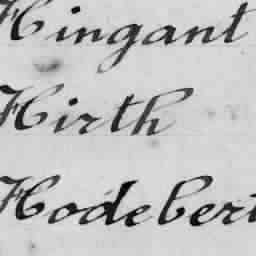 Hingant
Hirth
Hodebert